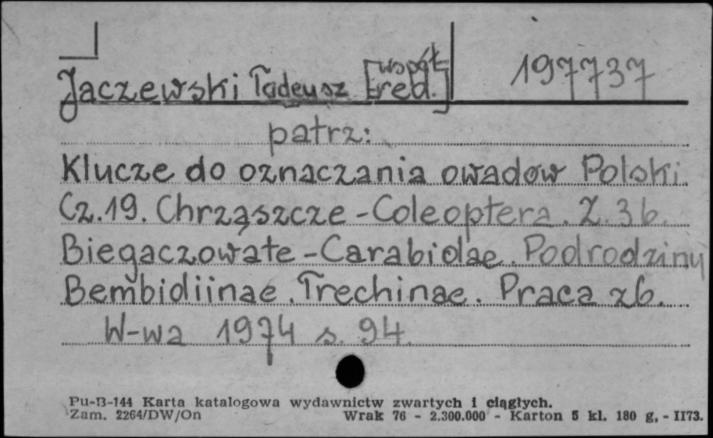 Jaczewski Tadeusz [współred.] 197737
patrz:
Klucze do oznaczania owadów Polski.
Cz. 19. Chrząszcze - Coleoptera. Z. 3b.
Biegaczowate - Carabidae. Podrodziny
Bembidiinae, Trechinae. Praca zb.
W-wa 1974 s. 94.
Pu-B-144 Karta katalogowa wydawnictw zwartych i ciągłych.
Zam. 2264/DW/On Wrak 76 - 2.300.000 - Karton 5 kl. 180 g. - II73.